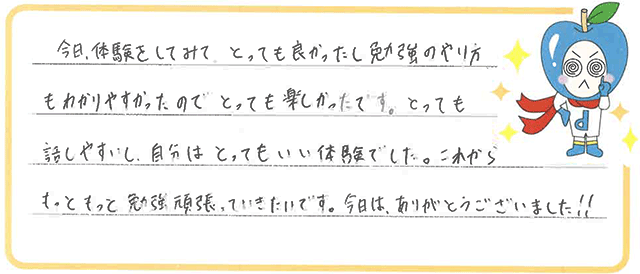 今日、体験をしてみて、とっても良かったし勉強のやり方
もわかりやすかったのでとっても楽しかったです。とっても
話しやすいし、自分はとってもいい体験でした。これから
もっともっと勉強頑張っていきたいです。今日は、ありがとうございました!!
d